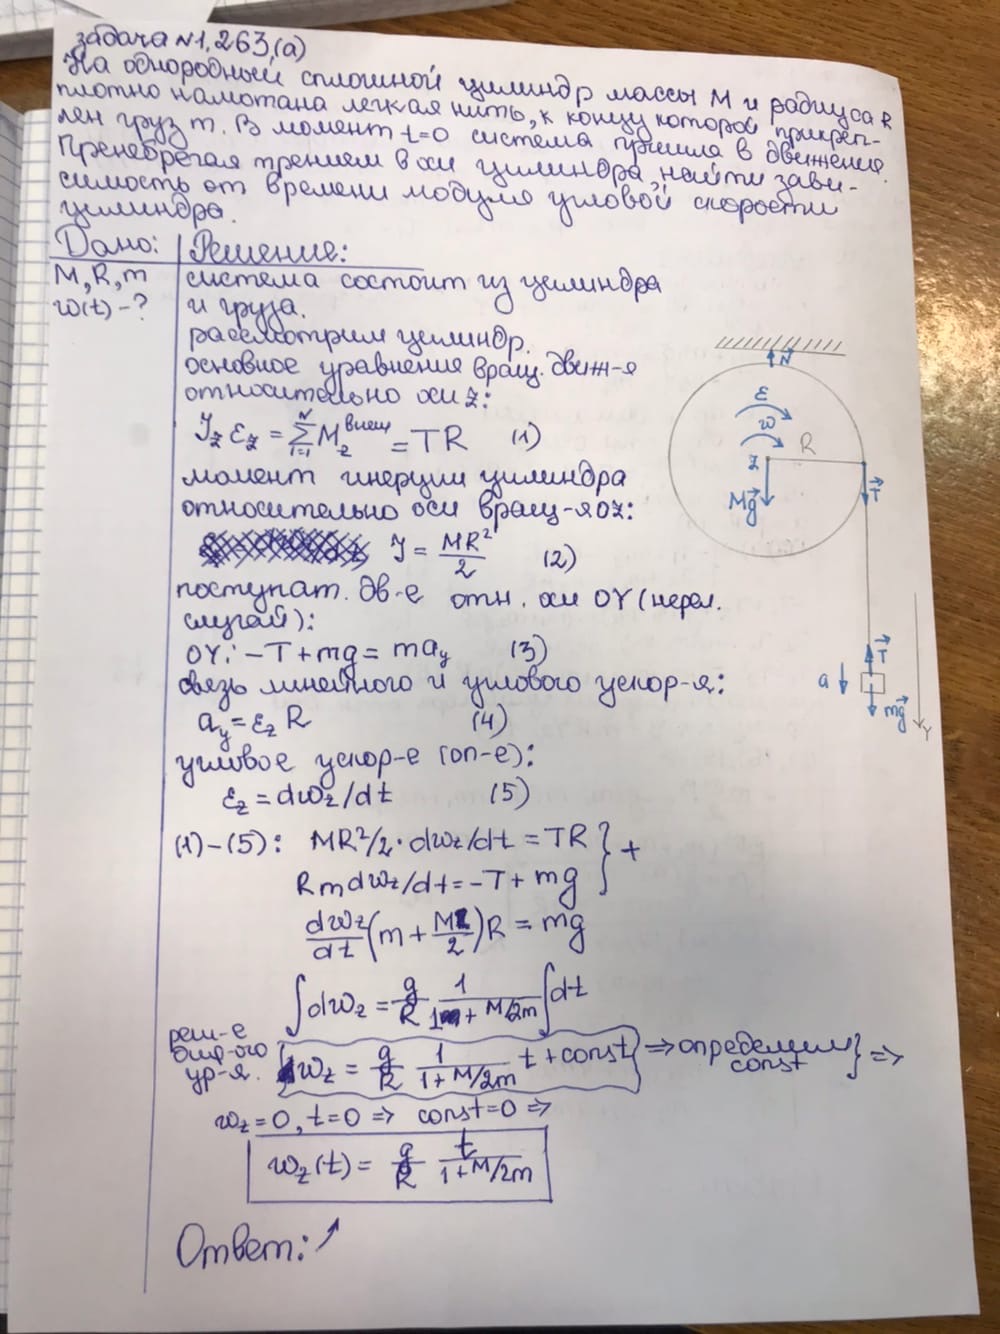 задача №1,263,(а)
На однородный сплошной цилиндр массы М и радиуса R
плотно намотана легкая нить, к концу которой прикреп-
лен груз m. В момент t=0 система пришла в движение.
Пренебрегая трением в оси цилиндра, найти зави-
симость от времени модуля угловой скорости
цилиндра.
Дано: Решение:
M, R, m система состоит из цилиндра
ω(t) - ? и груза.
рассмотрим цилиндр.
основное уравнение вращ. движ-я
относительно оси z:
J_z ε_z = Σ_{i=1}^{N} M_z^{внеш} = TR (1)
момент инерции цилиндра
относительно оси вращ-я OZ:
J = MR²/2 (2)
поступат. дв-е отн. оси OY (нерел.
случай):
OY: -T + mg = ma_y (3)
связь линейного и углового ускор-я:
a_y = ε_z R (4)
угловое ускор-е (оп-е):
ε_z = dω_z/dt (5)
(1)-(5): MR²/2 · dω_z/dt = TR } +
Rm dω_z/dt = -T + mg
dω_z/dt (m + M/2) R = mg
∫dω_z = g/R 1/(1 + M/2m) ∫dt
реш-е
диф-ого
ур-я.
ω_z = g/R 1/(1 + M/2m) t + const => определим const } =>
ω_z = 0, t = 0 => const = 0 =>
ω_z(t) = g/R t/(1 + M/2m)
Ответ: ↗
N
ε
ω
z R
Mg T
T
a
mg
Y